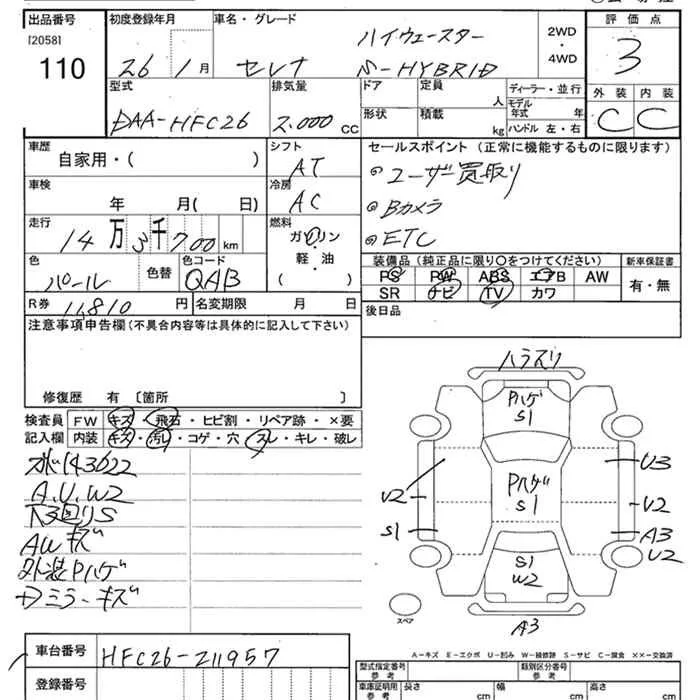 出品番号 初度登録年月 車名・グレード 評価点
[2058]
110 26 1月 セレナ ハイウェースター S-HYBRID 2WD・4WD 3
型式 排気量 ドア 定員 人 ディーラー・並行 外装 内装
DAA-HFC26 2.000 CC 形状 積載 kg モデル年式 年 ハンドル 左・右 C C
車歴 自家用・( ) シフト AT
車検 年 月( 日) 冷房 AC
走行 14万3千700km 燃料 ガソリン 軽・油 ( )
色 パール 色替 色コード QAB
R券 11,810 円 名変期限 月 日
セールスポイント (正常に機能するものに限ります)
ユーザー買取り
Bカメラ
ETC
装備品 (純正品に限り〇をつけてください) 新車保証書
PS PW ABS エアB AW 有・無
SR ナビ TV カワ
後日品
注意事項申告欄(不具合内容等は具体的に記入して下さい)
修復歴 有 [箇所 ]
検査員 FW キズ・飛石・ヒビ割・リペア跡・×要
記入欄 内装 キズ・汚レ・コゲ・穴・スレ・キレ・破レ
A.U.W2
下回りS
AWキズ
外装Pハゲ
ミラーキズ
ハラズリ
Pハゲ
S1
U3
Pハゲ
S1
U2
V2
S1
A3
U2
S1
W2
スペア
A3
A-キズ E-エクボ U-凹み W-補修跡 S-サビ C-腐食 ××-交換済
車台番号 HFC26-211957
登録番号
型式指定番号 参考 類別区分番号 参考
車庫証明用 参考 長さ cm 幅 cm 高さ cm